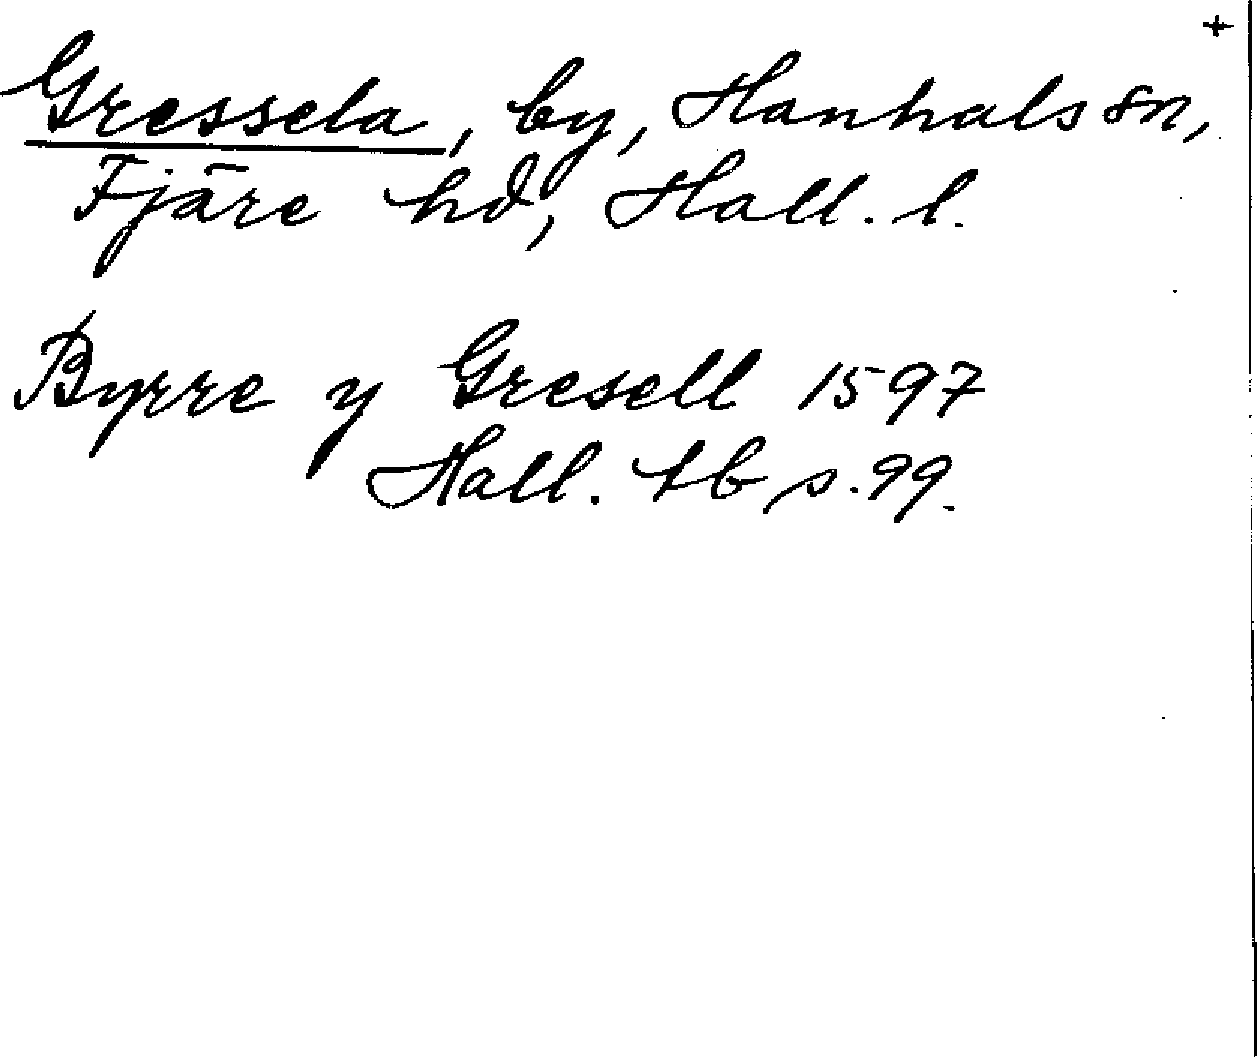 +
Gressela, by, Hanhals sn,
Fjäre hd, Hall. l.
Byrre y Gresell 1597
Hall. tb s. 99.